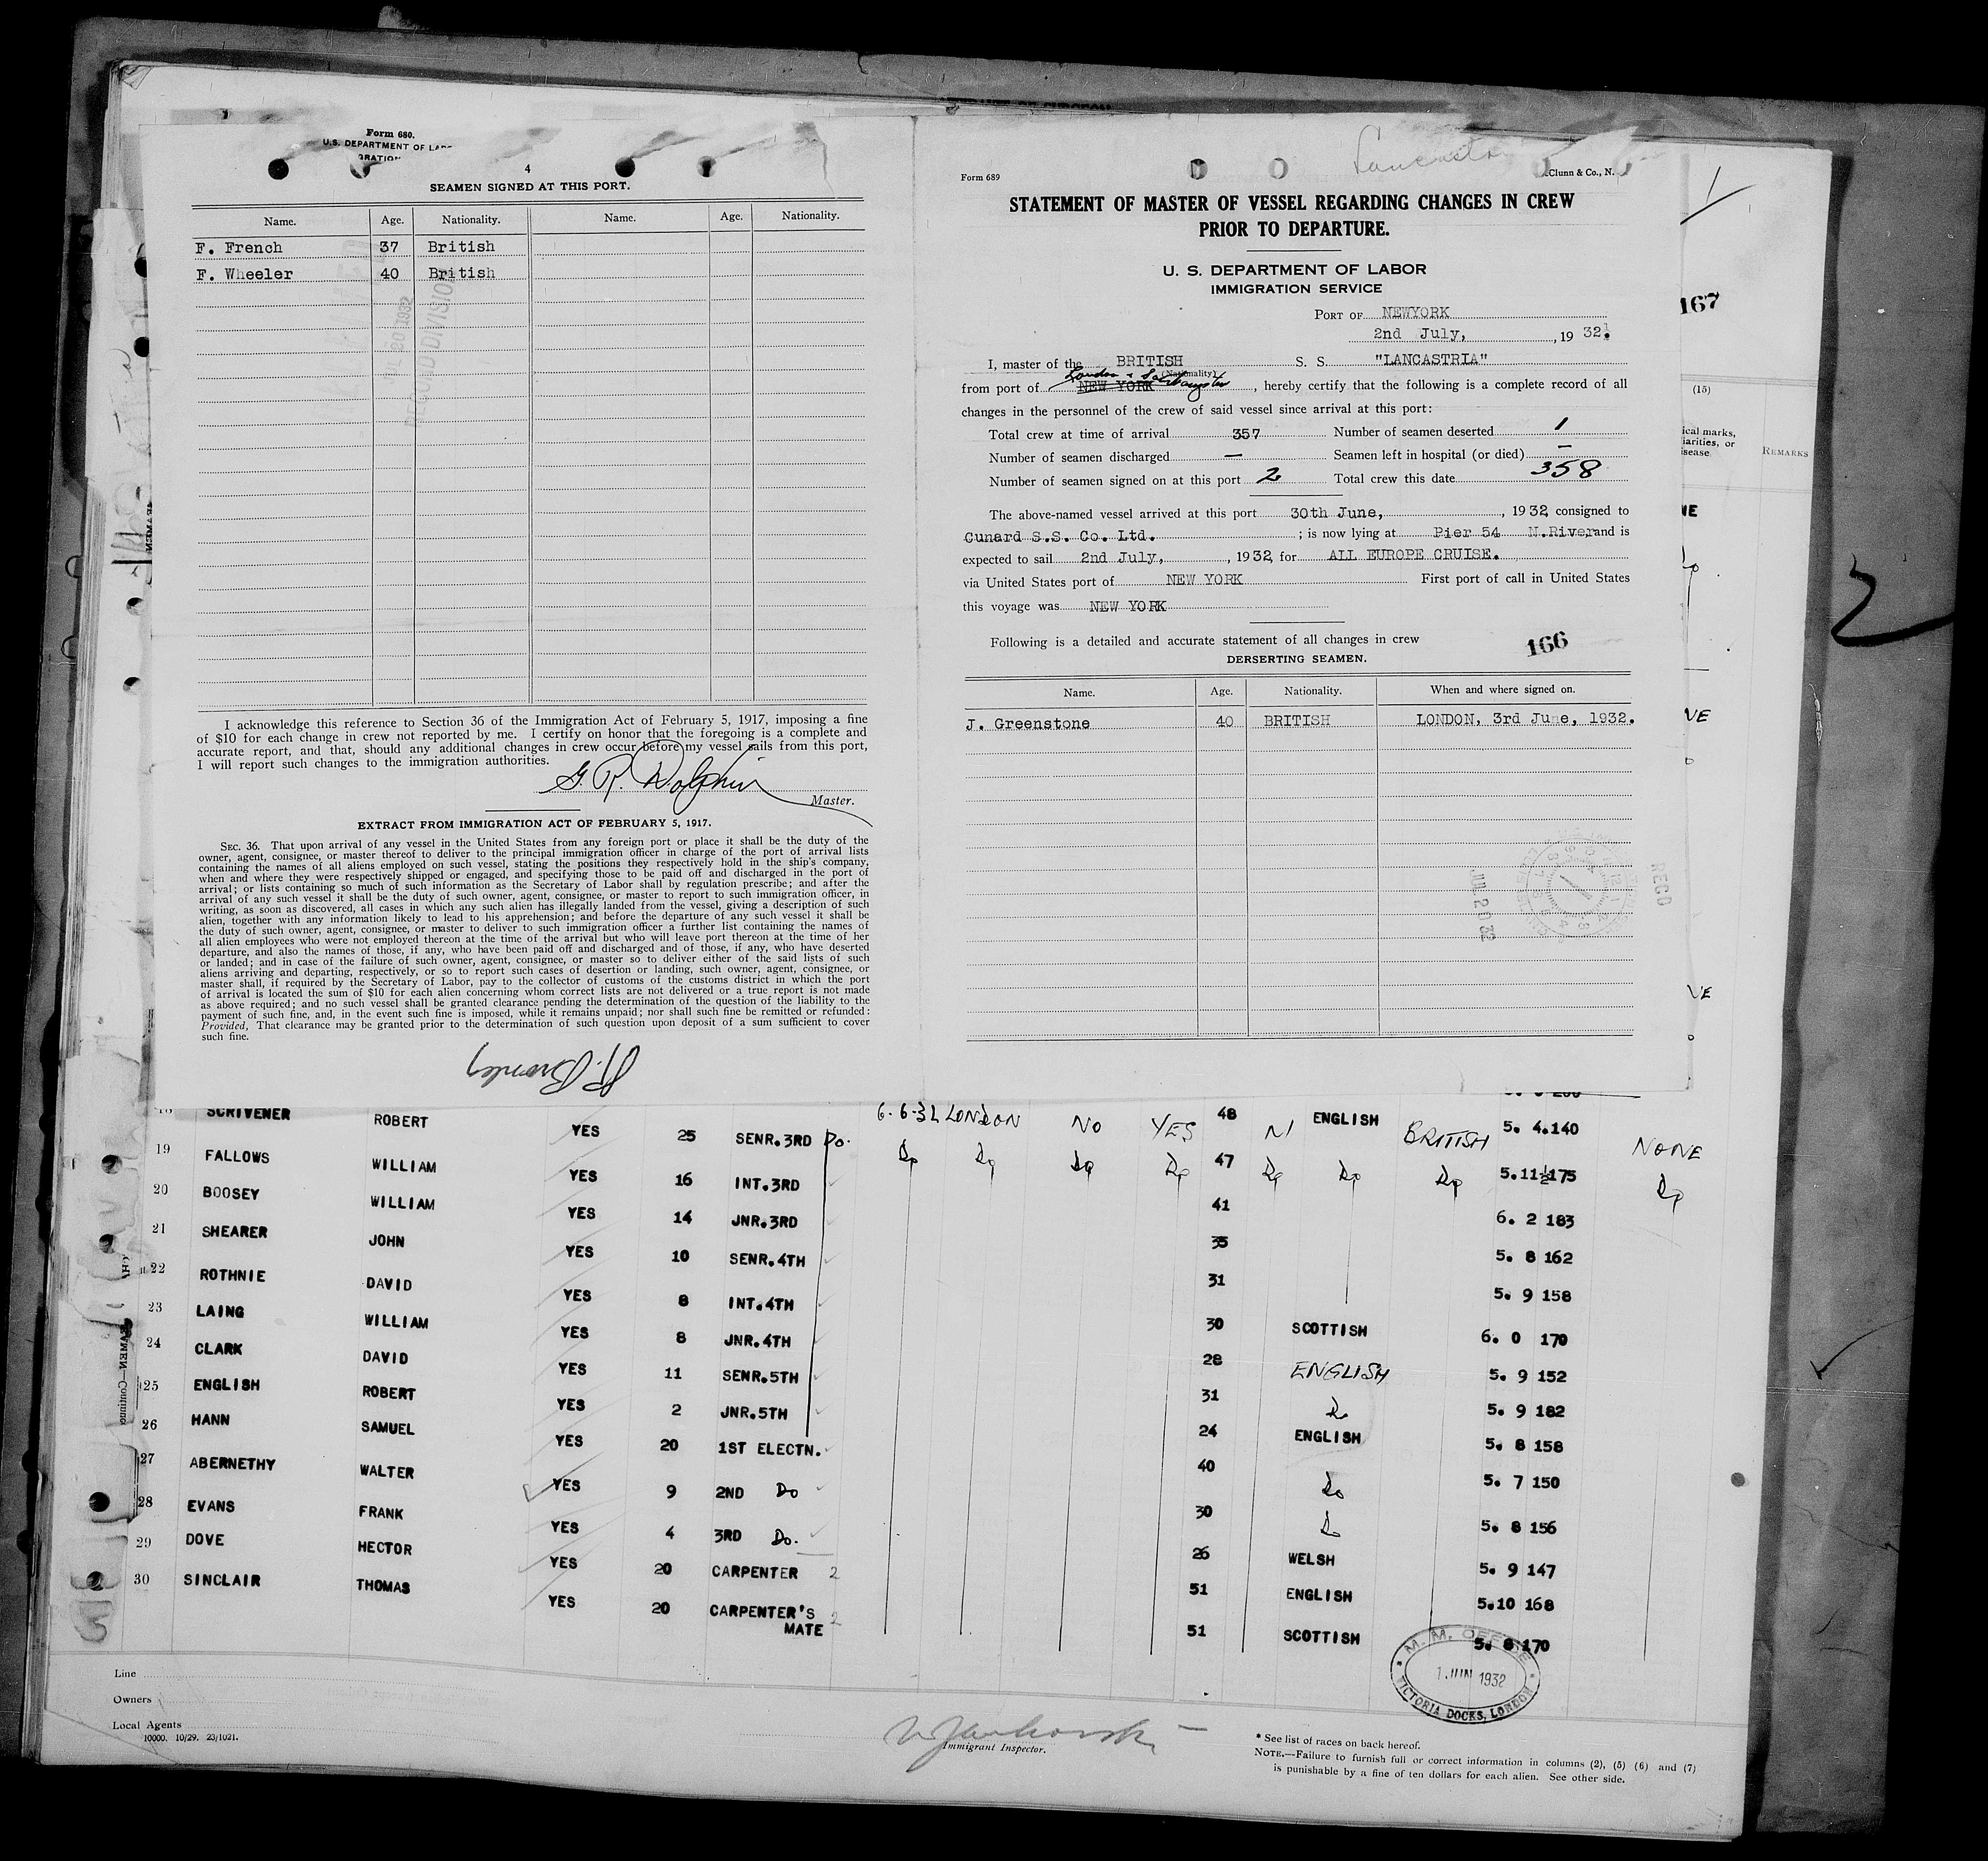 Form 680.
U.S. DEPARTMENT OF
4
SEAMEN SIGNED AT THIS PORT.
Name. Age. Nationality. Name. Age. Nationality.
F. French 37 British
F. Wheeler 40 British
RECORD DIVISION
I acknowledge this reference to Section 36 of the Immigration Act of February 5, 1917, imposing a fine
of $10 for each change in crew not reported by me. I certify on honor that the foregoing is a complete and
accurate report, and that, should any additional changes in crew occur before my vessel sails from this port,
I will report such changes to the immigration authorities.
G. R. Dolphin
Master.
EXTRACT FROM IMMIGRATION ACT OF FEBRUARY 5, 1917.
SEC. 36. That upon arrival of any vessel in the United States from any foreign port or place it shall be the duty of the
owner, agent, consignee, or master thereof to deliver to the principal immigration officer in charge of the port of arrival lists
containing the names of all aliens employed on such vessel, stating the positions they respectively hold in the ship's company,
when and where they were respectively shipped or engaged, and specifying those to be paid off and discharged in the port of
arrival; or lists containing so much of such information as the Secretary of Labor shall by regulation prescribe; and after the
arrival of any such vessel it shall be the duty of such owner, agent, consignee, or master to report to such immigration officer, in
writing, as soon as discovered, all cases in which any such alien has illegally landed from the vessel, giving a description of such
alien, together with any information likely to lead to his apprehension; and before the departure of any such vessel it shall be
the duty of such owner, agent, consignee, or master to deliver to such immigration officer a further list containing the names of
all alien employees who were not employed thereon at the time of the arrival but who will leave port thereon at the time of her
departure, and also the names of those, if any, who have been paid off and discharged and of those, if any, who have deserted
or landed; and in case of the failure of such owner, agent, consignee, or master so to deliver either of the said lists of such
aliens arriving and departing, respectively, or so to report such cases of desertion or landing, such owner, agent, consignee, or
master shall, if required by the Secretary of Labor, pay to the collector of customs of the customs district in which the port
of arrival is located the sum of $10 for each alien concerning whom correct lists are not delivered or a true report is not made
as above required; and no such vessel shall be granted clearance pending the determination of the question of the liability to the
payment of such fine, and, in the event such fine is imposed, while it remains unpaid; nor shall such fine be remitted or refunded:
Provided, That clearance may be granted prior to the determination of such question upon deposit of a sum sufficient to cover
such fine.
Form 689
STATEMENT OF MASTER OF VESSEL REGARDING CHANGES IN CREW
PRIOR TO DEPARTURE.
U. S. DEPARTMENT OF LABOR
IMMIGRATION SERVICE
PORT OF NEWYORK
2nd July, , 19 32.
I, master of the BRITISH S. S. "LANCASTRIA"
(Nationality)
London & Southampton
from port of NEW YORK , hereby certify that the following is a complete record of all
changes in the personnel of the crew of said vessel since arrival at this port:
Total crew at time of arrival 357 Number of seamen deserted 1
Number of seamen discharged — Seamen left in hospital (or died) —
Number of seamen signed on at this port 2 Total crew this date 358
The above-named vessel arrived at this port 30th June, , 1932 consigned to
Cunard S.S. Co. Ltd. ; is now lying at Pier 54 N.River and is
expected to sail 2nd July, , 1932 for ALL EUROPE CRUISE.
via United States port of NEW YORK First port of call in United States
this voyage was NEW YORK
Following is a detailed and accurate statement of all changes in crew
166
DERSERTING SEAMEN.
Name. Age. Nationality. When and where signed on.
J. Greenstone 40 BRITISH LONDON, 3rd June, 1932.
RECD
167
(15)
REMARKS
18 SCRIVENER ROBERT YES 25 SENR.3RD Do. 6-6-32 LONDON NO YES 48 N ENGLISH BRITISH 5. 4.140 NONE
19 FALLOWS WILLIAM YES 16 INT.3RD Do Do Do Do 47 Do Do Do 5.11½175 Do
20 BOOSEY WILLIAM YES 14 JNR.3RD 41 6. 2 183
21 SHEARER JOHN YES 10 SENR.4TH 35 5. 8 162
22 ROTHNIE DAVID YES 8 INT.4TH 31 5. 9 158
23 LAING WILLIAM YES 8 JNR.4TH 30 SCOTTISH 6. 0 170
24 CLARK DAVID YES 11 SENR.5TH 28 ENGLISH 5. 9 152
25 ENGLISH ROBERT YES 2 JNR.5TH 31 Do 5. 9 182
26 HANN SAMUEL YES 20 1ST ELECTN. 24 ENGLISH 5. 8 158
27 ABERNETHY WALTER YES 9 2ND Do 40 Do 5. 7 150
28 EVANS FRANK YES 4 3RD Do. 30 Do 5. 8 156
29 DOVE HECTOR YES 20 CARPENTER 2 26 WELSH 5. 9 147
30 SINCLAIR THOMAS YES 20 CARPENTER'S MATE 2 51 ENGLISH 5.10 168
51 SCOTTISH 5. 8 170
M. M. OFFICE
1 JUN 1932
VICTORIA DOCKS, LONDON
Line
Owners
Local Agents
10000. 10/29. 23/1021.
Immigrant Inspector.
* See list of races on back hereof.
NOTE.—Failure to furnish full or correct information in columns (2), (5) (6) and (7)
is punishable by a fine of ten dollars for each alien. See other side.